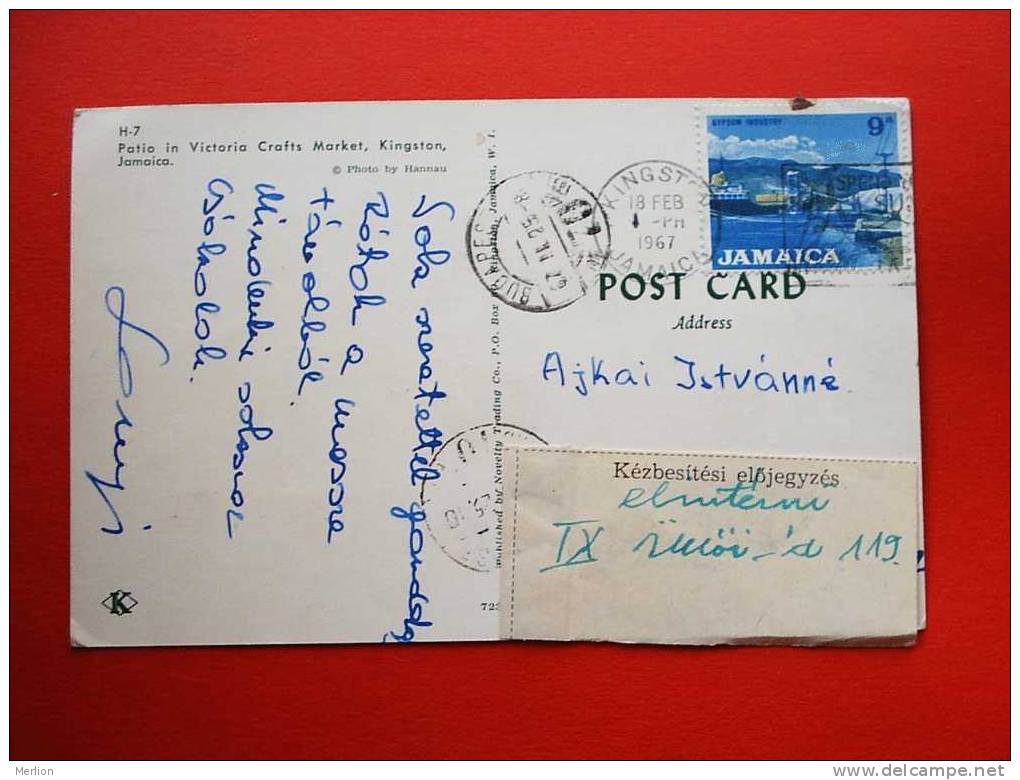 H-7
Patio in Victoria Crafts Market, Kingston,
Jamaica.
© Photo by Hannau
Sok szeretettel gondolok
Rátok a messze
távolból.
Mindenkit sokszor
Csókolok.
Published by Novelty Trading Co., P.O. Box Kingston, Jamaica, W. I.
BUDAPEST
67 II 25
KINGSTON
18 FEB
-PM
1967
JAMAICA
GYPSUM INDUSTRY
9d
JAMAICA
POST CARD
Address
Ajkai Istvánné.
Kézbesítési előjegyzés
IX Üllői-út 119.
K
723
Merlion
delcampe.net